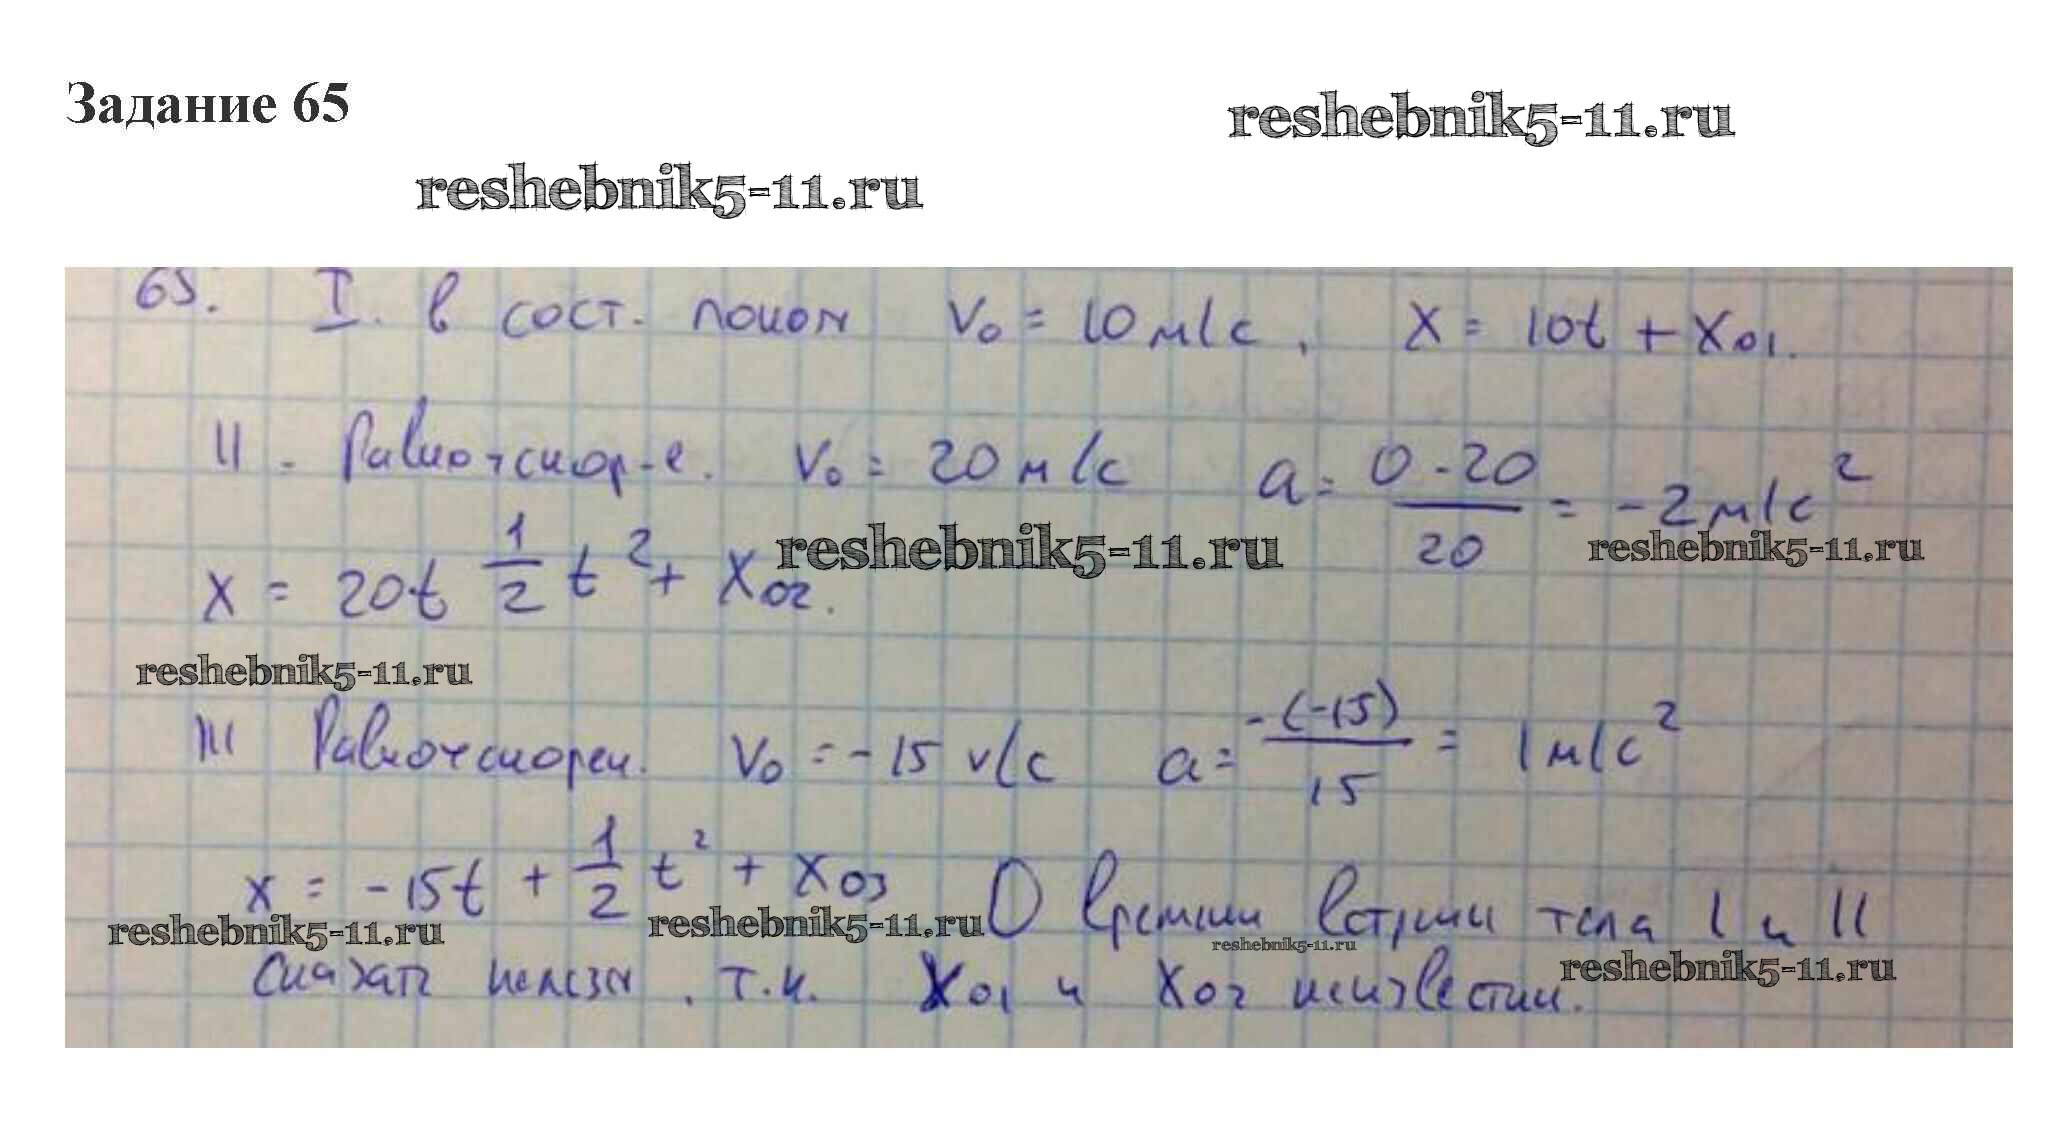 Задание 65
reshebnik5-11.ru
reshebnik5-11.ru
65. I. в сост. покоя V₀ = 10 м/с, X = 10t + X₀₁.
II - Равноускор-е. V₀ = 20 м/с a = (0 - 20)/20 = -2 м/с²
X = 20t 1/2 t² + X₀₂.
reshebnik5-11.ru
reshebnik5-11.ru
reshebnik5-11.ru
III Равноускорен. V₀ = -15 м/с a = -(-15)/15 = 1 м/с²
X = -15t + 1/2 t² + X₀₃ О времени встречи тела I и II
reshebnik5-11.ru
reshebnik5-11.ru
reshebnik5-11.ru
reshebnik5-11.ru
сказать нельзя, т.к. X₀₁ и X₀₂ неизвестны.